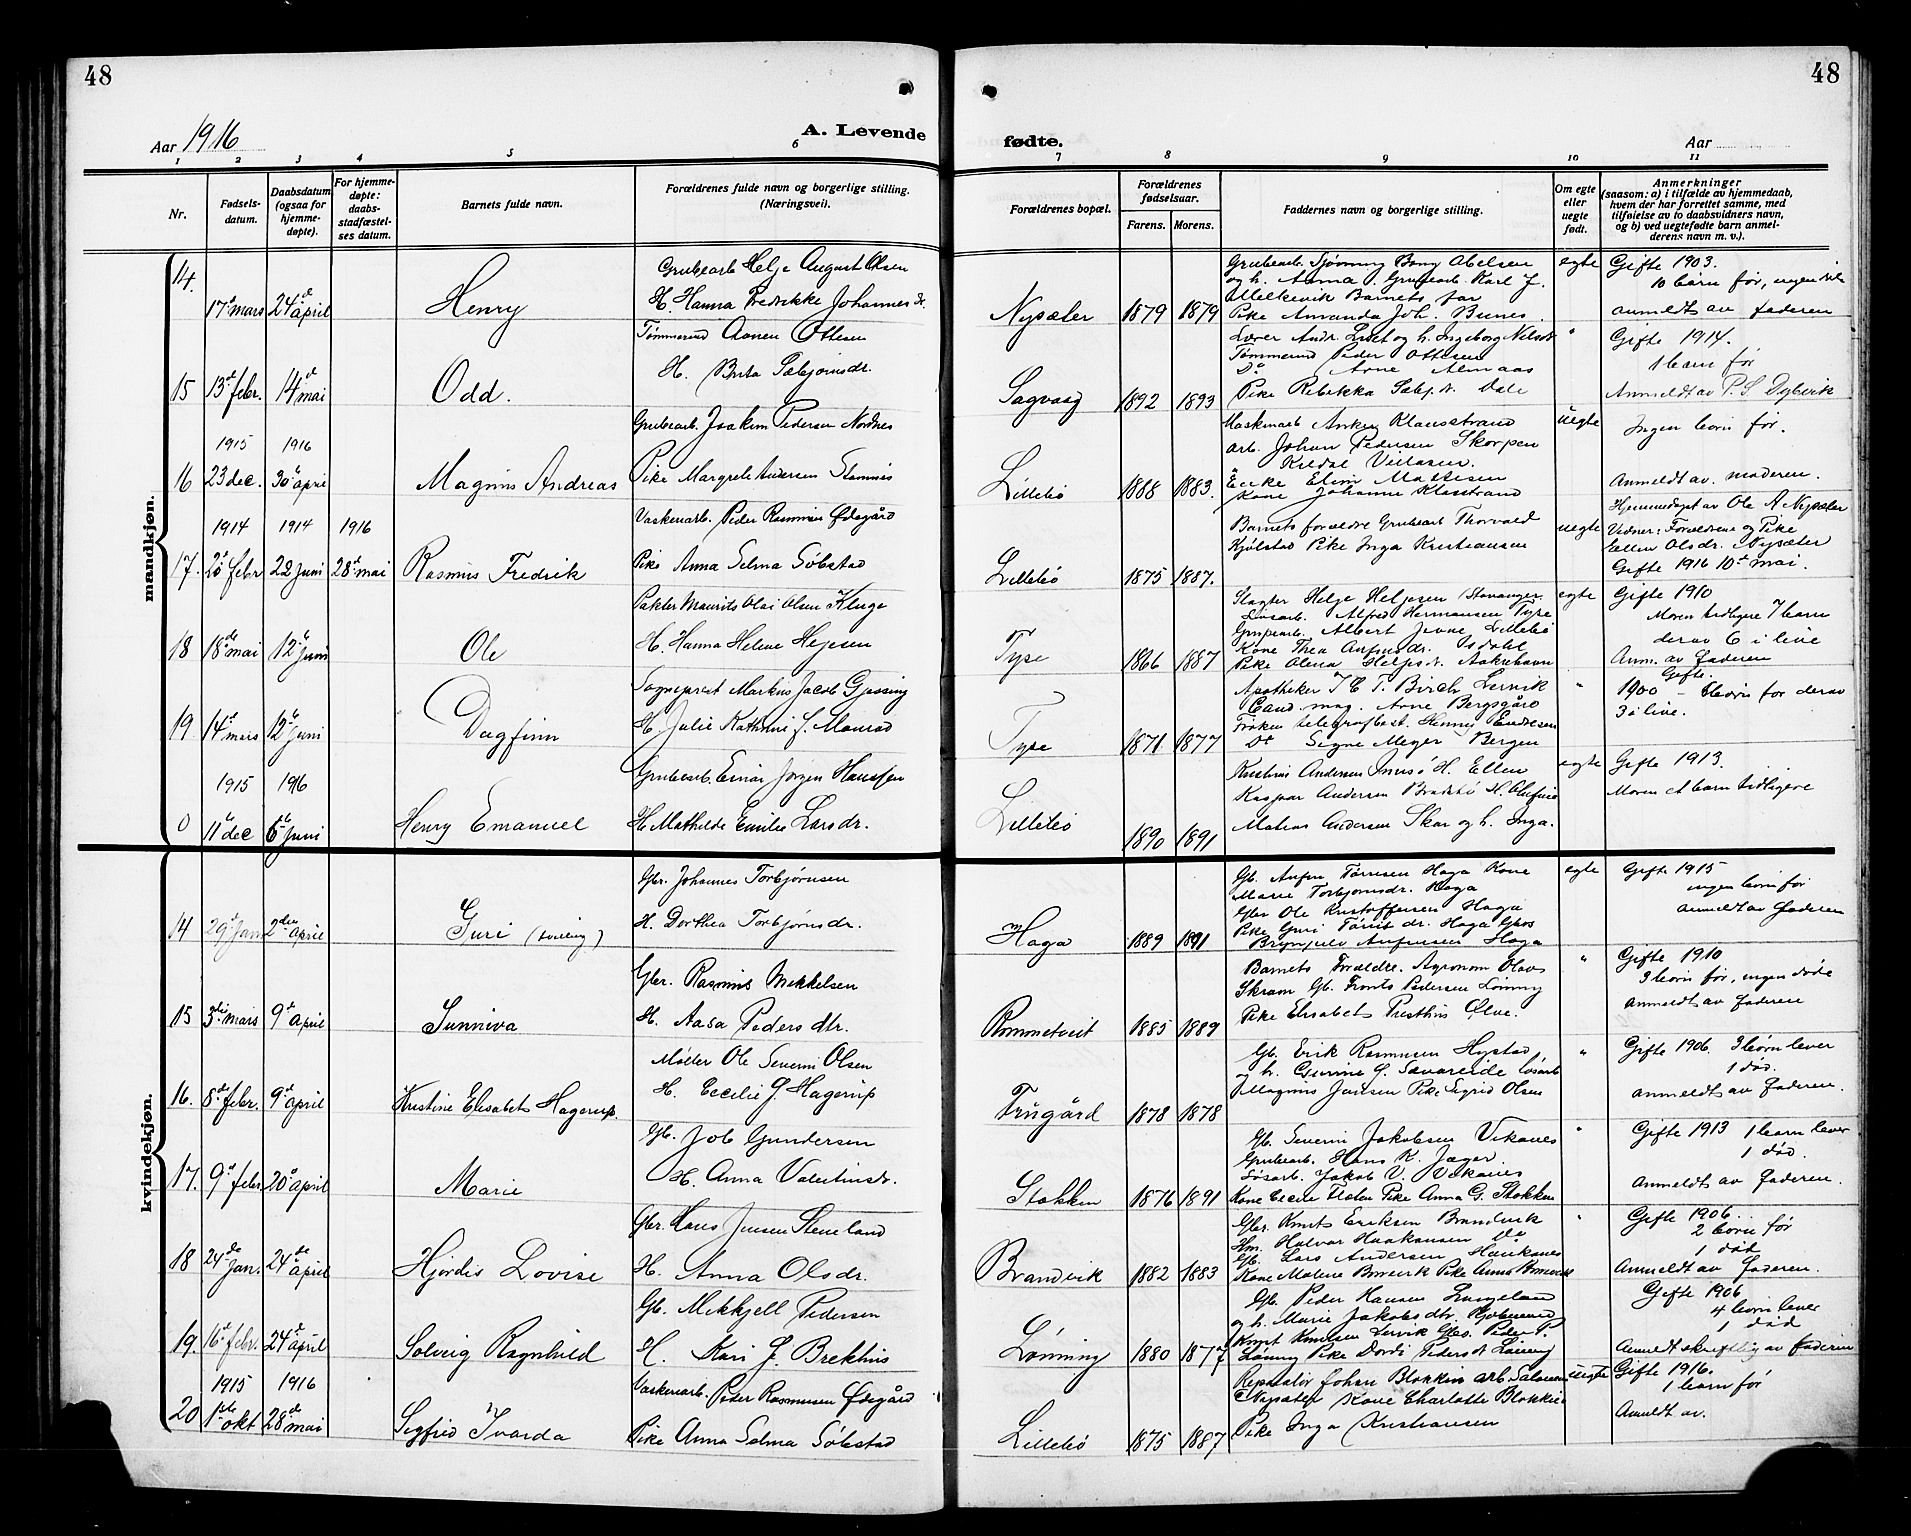 48
48
Aar 1916
A. Levende
fødte.
Aar
1 2 3 4 5 6 7 8 9 10 11
Nr.
Fødsels-
datum.
Daabsdatum
(ogsaa for
hjemme-
døpte).
For hjemme-
døpte:
daabs-
stadfæstel-
ses datum.
Barnets fulde navn.
Forældrenes fulde navn og borgerlige stilling.
(Næringsvei).
Forældrenes bopæl.
Forældrenes
fødselsaar.
Farens. Morens.
Faddernes navn og borgerlige stilling.
Om egte
eller
uegte
født.
Anmerkninger
(saasom: a) i tilfælde av hjemmedaab,
hvem der har forrettet samme, med
tilføielse av to daabsvidners navn,
og b) ved uegtefødte barn anmel-
derens navn m. v.).
mandkjøn.
14.
17de mars 24de april
Henry
Grubearb Helje August Olsen
H. Hanna Fredrikke Johannesdr.
Nysæter 1879 1879
og h. Anna. Grubearb. Karl J.
Melkevik Barnets far
Pike Amanda Joh. Bunes.
egte
Gifte 1903.
10 børn før, ingen
anmeldt av faderen
15 13de febr. 14de mai
Odd.
Tømmermd Aanen Ottesen
H. Brita Sæbjørnsdr.
Sagvaag 1892 1893
og h. Ingeborg Nilsdr
Tømmermd Peder Ottesen
Do Arne Almaas
Pike Rebekka Sæbj.dr. Dale
"
Gifte 1914.
1 barn før
Anmeldt av P. S. Dybvik
1915 1916
16 23 dec. 30 april
Magnus Andreas
Grubearb. Joakim Pedersen Nordnes
Pike Margrete Andersen Stamnes
Lillebø 1888 1883.
Arb. Johan Pedersen Skorpen
Kone Johanne Klosstrand
uegte
Ingen børn før.
Anmeldt av moderen.
1914 1914 1916
17. 20 febr 22 juni 28de mai
Rasmus Fredrik
Vaskeriarb. Peder Rasmusen Ødegård
Pike Anna Selma Søbstad
Lillebø 1875 1887.
Barnets forældre Grubearb Thorvald
Kjølstad Pike Inga Kristiansen
uegte
Hjemmedøpt av Ole A. Nysæter
Vidner: Forældrene og Pike
Ellen Olsdr. Nysæter
Gifte 1916 10de mai.
18 18de mai 12te juni
Ole
Pakter Maurits Olai Olsen Kluge
H. Hanna Helene Hejesen
Tyse 1866 1887
Slagter Helje Heljesen Stavanger
Løsarb. Alfred Hermansen Tyse
Grubearb. Albert Lillebø
Kone Thea
Pike Olena
egte
Gifte 1910
Moren tidligere 7 barn
derav 6 i live
Anm. av faderen
19 14de mars 12te juni
Dagfinn
Sogneprest Markus Jacob Gjessing
H. Julie Kathrine f. Monrad
Tyse 1871 1877
Apotheker J C T. Birch Lervik
Cand. mag. Arne Bergsgård
Frøken telegrafbest. Henny Endresen
Do Signe Meyer Bergen
"
Gifte
1900 – børn før derav
3 i live.
1915 1916
0 11te dec 6te juni
Henry Emanuel
Grubearb. Einar Jørgen Hanssen
H Mathilde Emilie Larsdr.
Lillebø 1890 1891
Kristine Andersen H. Ellen
Kaspar Andersen
Matias Andersen Skar og h. Inga.
egte
Gifte 1913.
Moren et barn tidligere
kvindekjøn.
14 29de Jan 2den april
Guri (tvilling)
Gbr. Johannes Torbjørnsen
H. Dorthea Torbjørnsdr.
Haga 1889 1891
Haga Kone
Marie Torbjørnsdr. Haga
Gbr Ole Kristoffersen Haga
Pike Guri dr. Haga Gbs
Brynjulv Anfinsen Haga
egte
Gifte 1915
ingen børn før
anmeldt av faderen
15 3die mars 9de april
Sunniva
Gbr. Rasmus Mikkelsen
H. Aasa Peders dtr.
Rommetveit 1885 1889
Barnets Forældre. Agronom Olav
Skram Gb. Pedersen Lønning
Pike Elisabet Ølve.
"
Gifte 1910
3 børn før, ingen døde
anmeldt av faderen
16. 8de febr. 9de april
Kristine Elisabet Hagerup.
Møller Ole Severin Olsen
H. Cecilie G Hagerup
Trugård 1878 1878
Gb. Erik Rasmusen Hystad
og h. Gurine G. Sævareide løsarb
Magnus Jansen Pike Sigrid Olsen
"
Gifte 1906. 3 børn lever
1 død.
anmeldt av faderen.
17. 9de febr 20de april
Marie
Gb. Job Gundersen
H. Anna Valentinsdr.
Stokken 1876 1891
Gb. Severin Jakobsen Vikanes
Grubearb. Hans K. Jæger
Løsarb. Jakob V. Vikanes
Pike Anna G. Stokken
"
Gifte 1913 1 barn lever
1 død.
anmeldt av faderen.
18 24de Jan. 24de april
Hjørdis Lovise
Gbr. Hans Jensen Steneland
H. Anna Olsdr.
Brandvik 1882 1883
Gbr. Knut Eriksen Brandvik
Hm. Halvor Haakonsen Do
Gb. Lars Andersen Haukanes
"
Gifte 1906.
2 børn før
1 død
Anmeldt av faderen.
19. 16de febr. 24de april
Solveig Ragnhild
Gb. Mikkjell Pedersen
H. Kari J. Brekhus
Lønning 1880 1877
Gb. Peder Hansen
og h. Marie Jakobsdtr.
Knut Knutsen Lervik Gbs. Peder P.
Lønning Pike Dordi Pedersdt Lønning
Gifte 1906
4 børn lever
1 død
Anmeldt skriftlig av faderen
1915 1916
20 1ste okt 28de mai
Sigfrid Tvarda
Vaskeriarb. Peder Rasmussen Ødegård
Pike Anna Selma Søbstad
Lillebø 1875 1887
Reparatør Johan Blokkin arb.
Nysæter Kone Charlotte Blokkin
Pike Inga Kristiansen
uegte
Gifte 1916.
1 barn før
Anmeldt av.